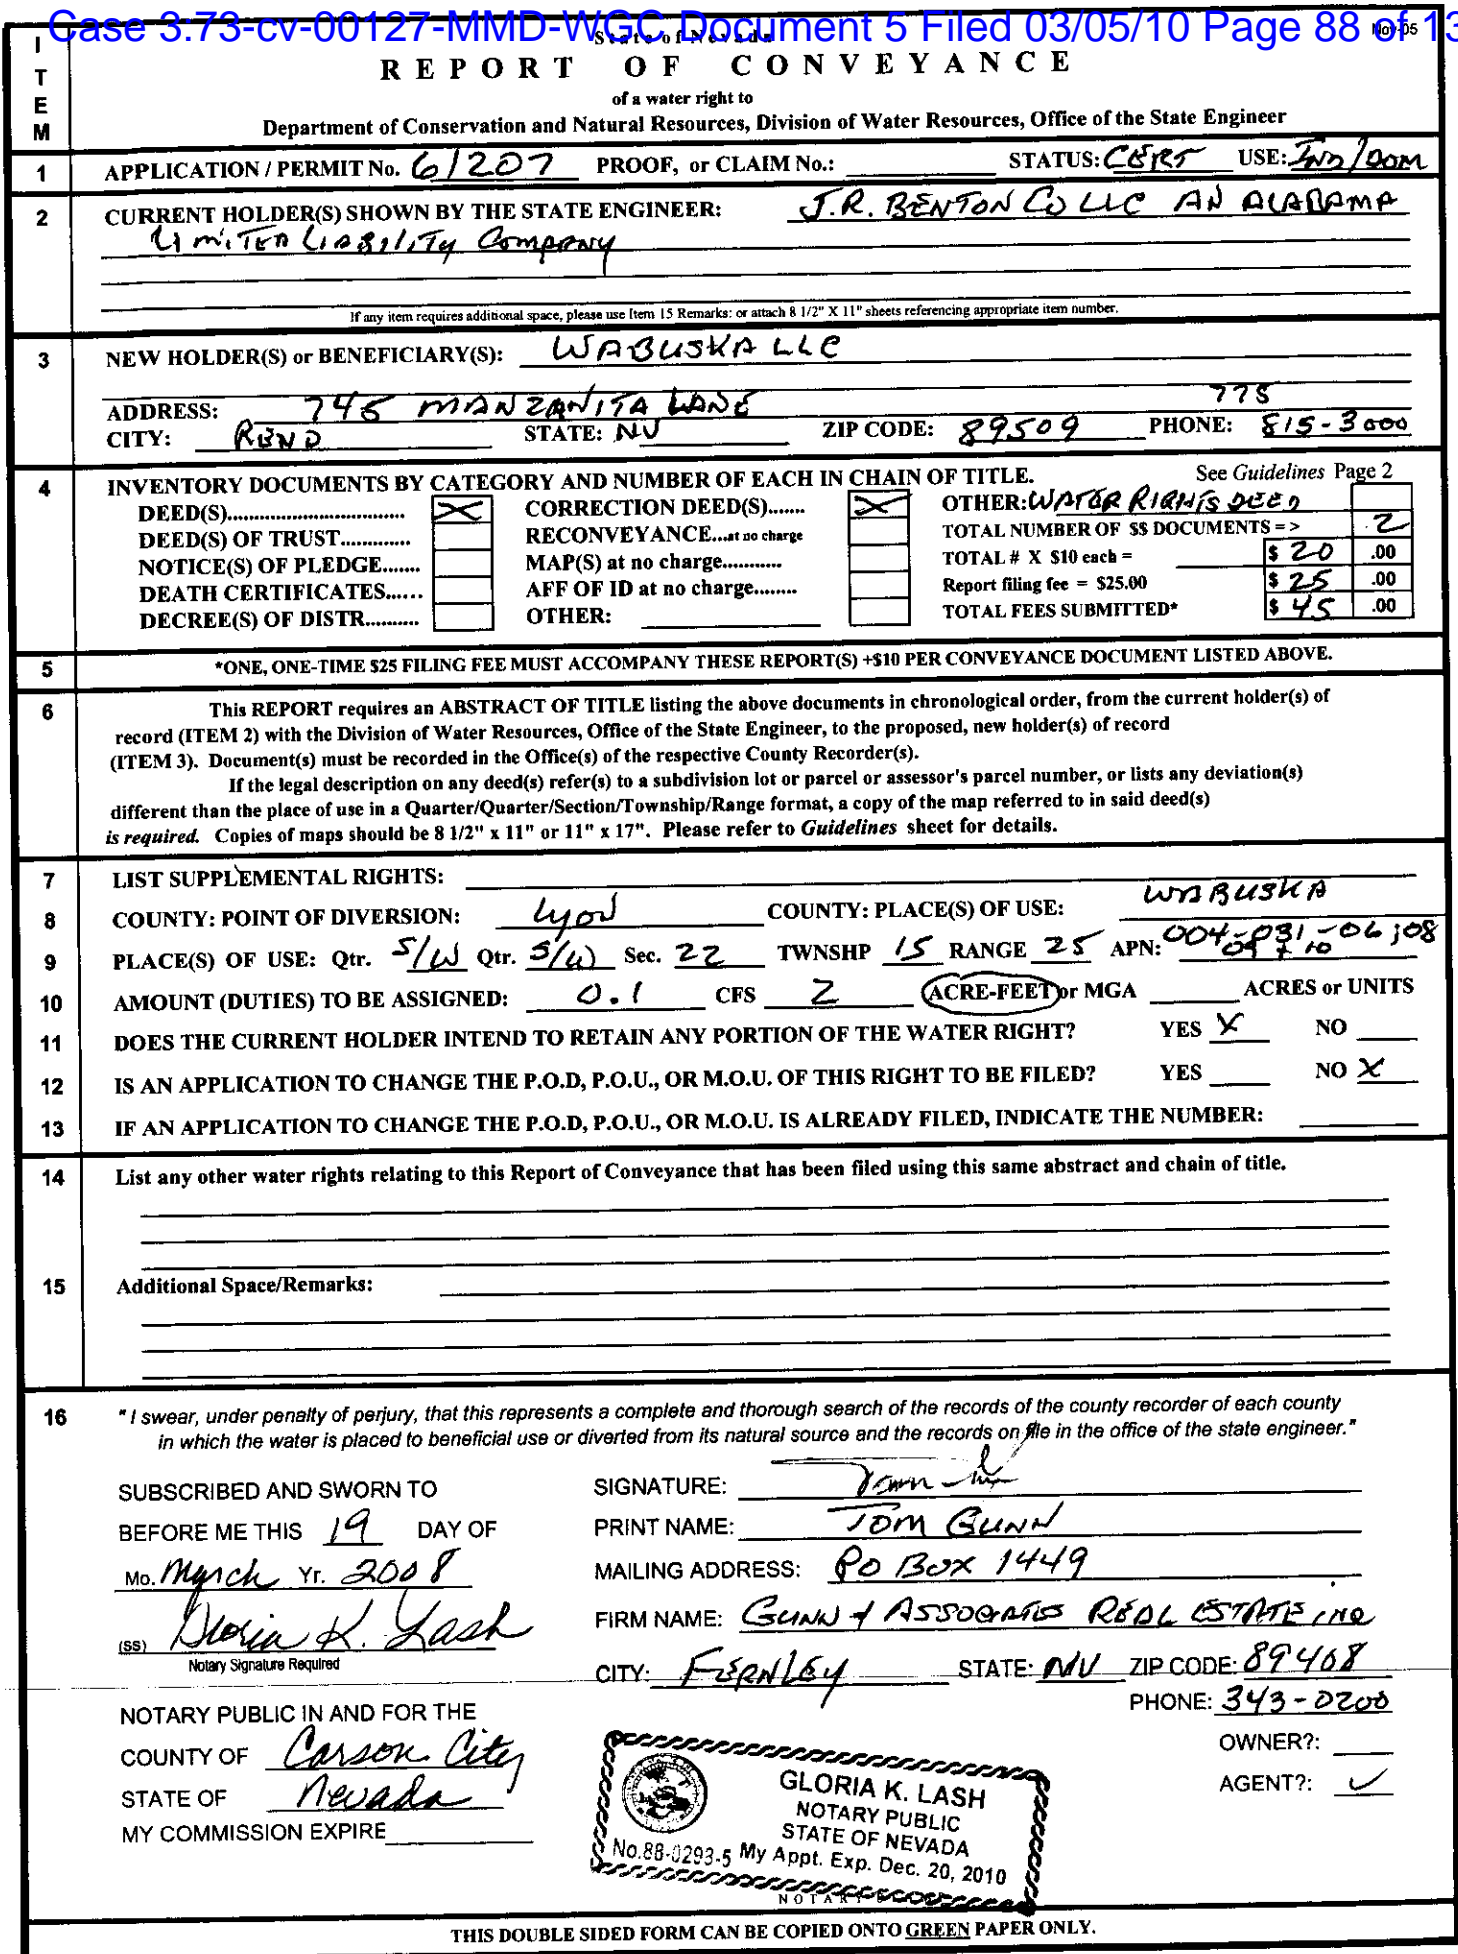 Case 3:73-cv-00127-MMD-WGC Document 5 Filed 03/05/10 Page 88 of 13
State of Nevada Nov-05
ITEM
REPORT OF CONVEYANCE
of a water right to
Department of Conservation and Natural Resources, Division of Water Resources, Office of the State Engineer
1 APPLICATION / PERMIT No. 61207 PROOF, or CLAIM No.: STATUS: CERT USE: IND/DOM
2 CURRENT HOLDER(S) SHOWN BY THE STATE ENGINEER: J.R. BENTON CO LLC AN ALABAMA
LIMITED LIABILITY COMPANY
If any item requires additional space, please use Item 15 Remarks: or attach 8 1/2" X 11" sheets referencing appropriate item number.
3 NEW HOLDER(S) or BENEFICIARY(S): WABUSKA LLC
ADDRESS: 745 MANZANITA LANE 775
CITY: RENO STATE: NV ZIP CODE: 89509 PHONE: 815-3000
4 INVENTORY DOCUMENTS BY CATEGORY AND NUMBER OF EACH IN CHAIN OF TITLE. See Guidelines Page 2
DEED(S)............................... X CORRECTION DEED(S)....... X OTHER: WATER RIGHTS DEED
DEED(S) OF TRUST............. RECONVEYANCE...at no charge TOTAL NUMBER OF $$ DOCUMENTS = > 2
NOTICE(S) OF PLEDGE....... MAP(S) at no charge............ TOTAL # X $10 each = $ 20 .00
DEATH CERTIFICATES...... AFF OF ID at no charge........ Report filing fee = $25.00 $ 25 .00
DECREE(S) OF DISTR.......... OTHER: TOTAL FEES SUBMITTED* $ 45 .00
5 *ONE, ONE-TIME $25 FILING FEE MUST ACCOMPANY THESE REPORT(S) +$10 PER CONVEYANCE DOCUMENT LISTED ABOVE.
6 This REPORT requires an ABSTRACT OF TITLE listing the above documents in chronological order, from the current holder(s) of
record (ITEM 2) with the Division of Water Resources, Office of the State Engineer, to the proposed, new holder(s) of record
(ITEM 3). Document(s) must be recorded in the Office(s) of the respective County Recorder(s).
If the legal description on any deed(s) refer(s) to a subdivision lot or parcel or assessor's parcel number, or lists any deviation(s)
different than the place of use in a Quarter/Quarter/Section/Township/Range format, a copy of the map referred to in said deed(s)
is required. Copies of maps should be 8 1/2" x 11" or 11" x 17". Please refer to Guidelines sheet for details.
7 LIST SUPPLEMENTAL RIGHTS:
8 COUNTY: POINT OF DIVERSION: Lyon COUNTY: PLACE(S) OF USE: WABUSKA
9 PLACE(S) OF USE: Qtr. S/W Qtr. S/W Sec. 22 TWNSHP 15 RANGE 25 APN: 004-031-06;08
09 + 10
10 AMOUNT (DUTIES) TO BE ASSIGNED: 0.1 CFS 2 ACRE-FEET or MGA ACRES or UNITS
11 DOES THE CURRENT HOLDER INTEND TO RETAIN ANY PORTION OF THE WATER RIGHT? YES X NO
12 IS AN APPLICATION TO CHANGE THE P.O.D, P.O.U., OR M.O.U. OF THIS RIGHT TO BE FILED? YES NO X
13 IF AN APPLICATION TO CHANGE THE P.O.D, P.O.U., OR M.O.U. IS ALREADY FILED, INDICATE THE NUMBER:
14 List any other water rights relating to this Report of Conveyance that has been filed using this same abstract and chain of title.
15 Additional Space/Remarks:
16 "I swear, under penalty of perjury, that this represents a complete and thorough search of the records of the county recorder of each county
in which the water is placed to beneficial use or diverted from its natural source and the records on file in the office of the state engineer."
SUBSCRIBED AND SWORN TO SIGNATURE:
BEFORE ME THIS 19 DAY OF PRINT NAME: TOM GUNN
Mo. March Yr. 2008 MAILING ADDRESS: PO BOX 1449
(SS) Gloria K. Lash FIRM NAME: GUNN + ASSOCIATES REAL ESTATE, INC
Notary Signature Required
CITY: FERNLEY STATE: NV ZIP CODE: 89408
PHONE: 343-0200
NOTARY PUBLIC IN AND FOR THE
COUNTY OF Carson City OWNER?:
STATE OF Nevada AGENT?: ✓
MY COMMISSION EXPIRE
GLORIA K. LASH
NOTARY PUBLIC
STATE OF NEVADA
No.88-0293-5 My Appt. Exp. Dec. 20, 2010
THIS DOUBLE SIDED FORM CAN BE COPIED ONTO GREEN PAPER ONLY.